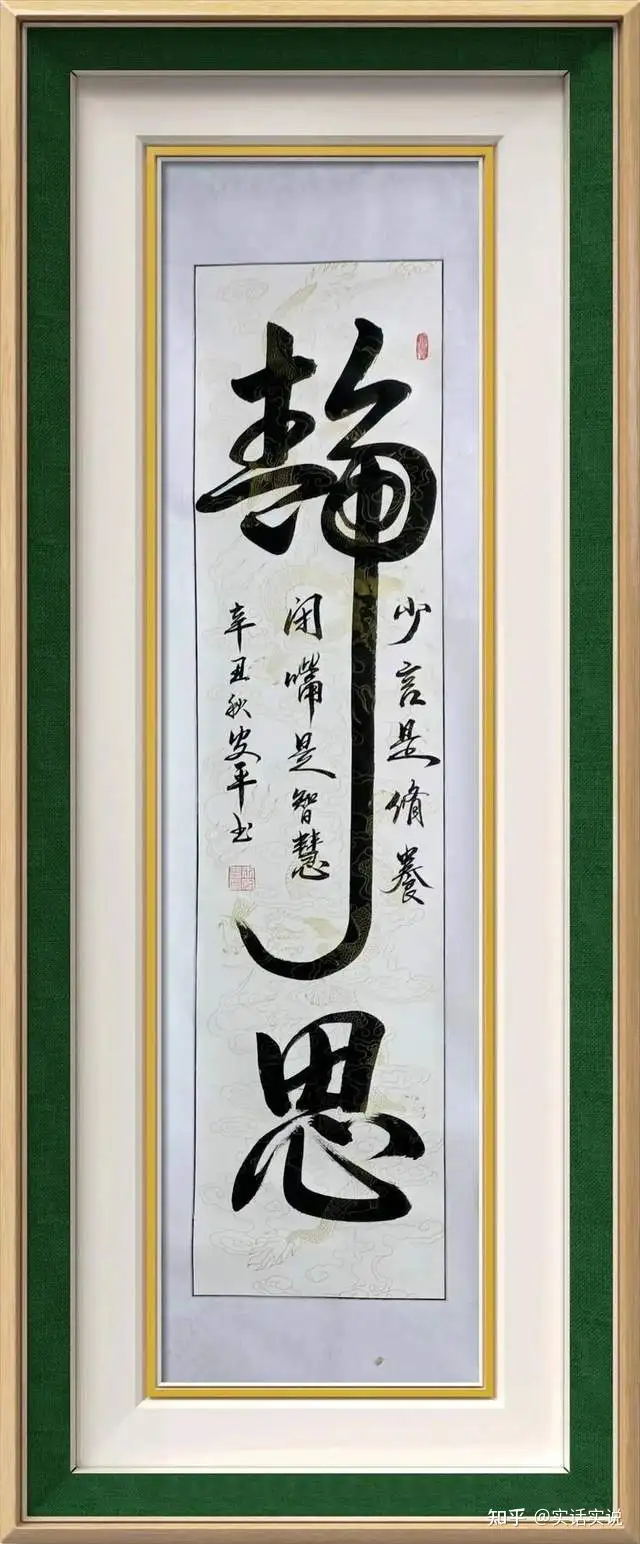 静思
少言是脩養
闭嘴是智慧
辛丑秋安平书
知乎 @实话实说